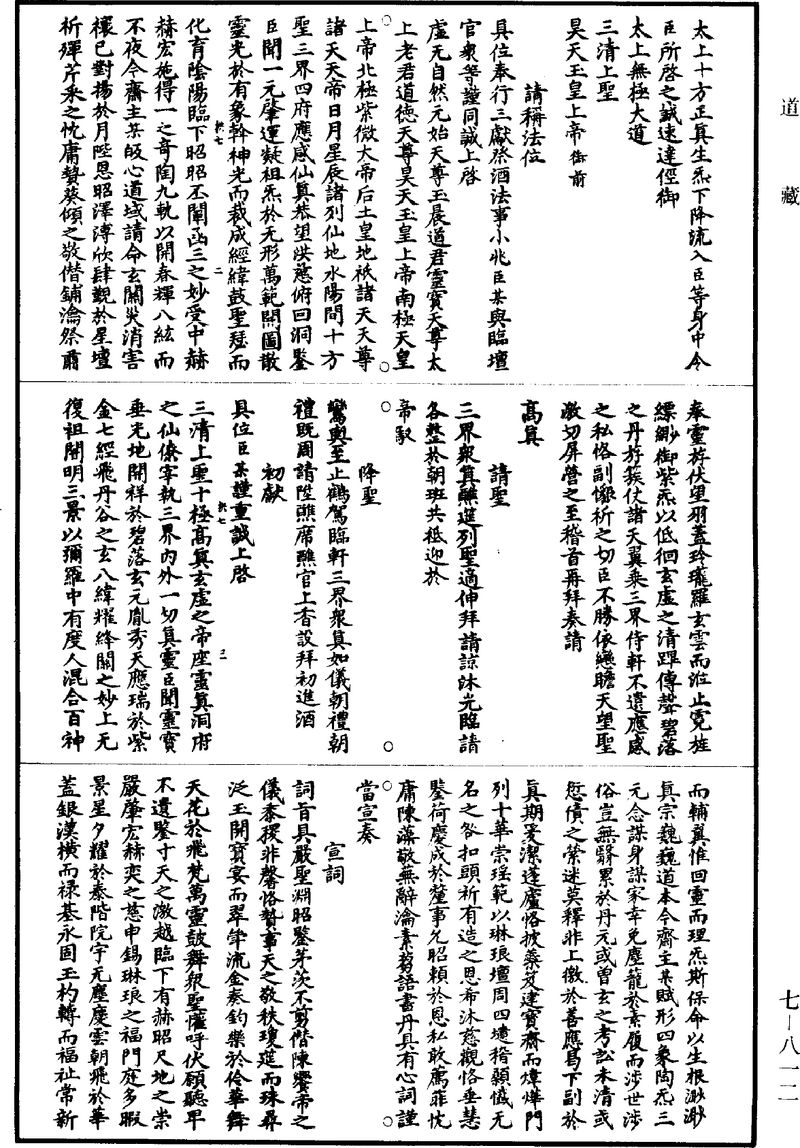 道藏
太上十方正真生炁下降流入臣等身中令
臣所啓之誠速達徑御
太上無極大道
三清上聖
昊天玉皇上帝御前
請稱法位
具位奉行三獻祭酒法事小兆臣某與臨壇
官衆等謹同誠上啓
虛无自然元始天尊玉晨道君靈寶天尊太
上老君道德天尊昊天玉皇上帝南極天皇
上帝北極紫微大帝后土皇地祇諸天天尊
諸天天帝日月星辰諸列仙地水陽間十方
聖三界四府應感仙真恭望洪慈俯回洞鑒
臣聞一元肇運凝祖炁於无形萬範開圖散
靈光於有象幹神光而裁成經緯鼓聖瑟而
化育陰陽臨下昭昭丕闡函三之妙受中赫
赫宏施得一之奇陶九軌以開春輝八紘而
不夜今齋主某皈心道域請命玄關災消害
禳已對揚於月陛恩昭澤溥欣肆覲於星壇
祈殫芹采之忱庸贊葵傾之敬偕鋪瀹祭肅
奉靈旂伏望羽蓋玲瓏羅玄雲而泣止霓旌
縹緲御紫炁以低徊玄虛之清蹕傳聲碧落
之丹旂簇仗諸天翼乘三界侍軒不遺應感
之私恪副懷祈之切臣不勝依戀瞻天望聖
激切屏營之至稽首再拜奏請
高真
請聖
三界衆真醮筵列聖適伸拜請諒沐光臨請
各整於朝班共祗迎於
帝馭
降聖
鸞輿至止鶴駕臨軒三界衆真如儀朝禮朝
禮既周請陞醮席醮官上香設拜初進酒
初獻
具位臣某謹重誠上啓
三清上聖十極高真玄虛之帝座靈真洞府
之仙僚宰執三界內外一切真靈臣聞靈寶
垂光地開祥於碧落玄元胤秀天應瑞於紫
金七經飛丹谷之玄八緯耀絳關之妙上无
復祖開明三景以彌羅中有度人混合百神
而輔翼惟回靈而理炁斯保命以生根渺渺
真宗巍巍道本今齋主某賦形四象陶炁三
元念謀身謀家幸免塵籠於素履而涉世涉
俗豈無繇累於丹元或曾玄之考訟未清或
愆債之縈迷莫釋非上徼於善應曷下副於
真期爰潔蘧廬恪披藥笈建寶齋而煒燁門
列十華崇瑶範以琳琅壇周四壝稽顙懺无
名之咎扣頭祈有造之恩希沐慈觀恪垂慧
鑒荷慶成於釐事允昭賴於恩私敢薦菲忱
庸陳藻敬蕪辭瀹素芻語書丹具有心詞謹
當宣奏
宣詞
詞旨具嚴聖淵昭鑒茅茨不剪偕陳饗帝之
儀黍稷非馨恪贊事天之敬秩瓊筵而珠尋
泛玉開寶宴而翠斝流金奏鈞樂於伶華舞
天花於飛梵萬靈鼓舞衆聖懽呼伏願聽卑
不遺鑒寸天之激越臨下有赫昭尺地之崇
嚴肇宏赫奕之慈申錫琳琅之福門庭多暇
景星夕耀於泰階院宇无塵慶雲朝飛於華
蓋銀漢橫而禄基永固玉杓轉而福祉常新
七—八一二